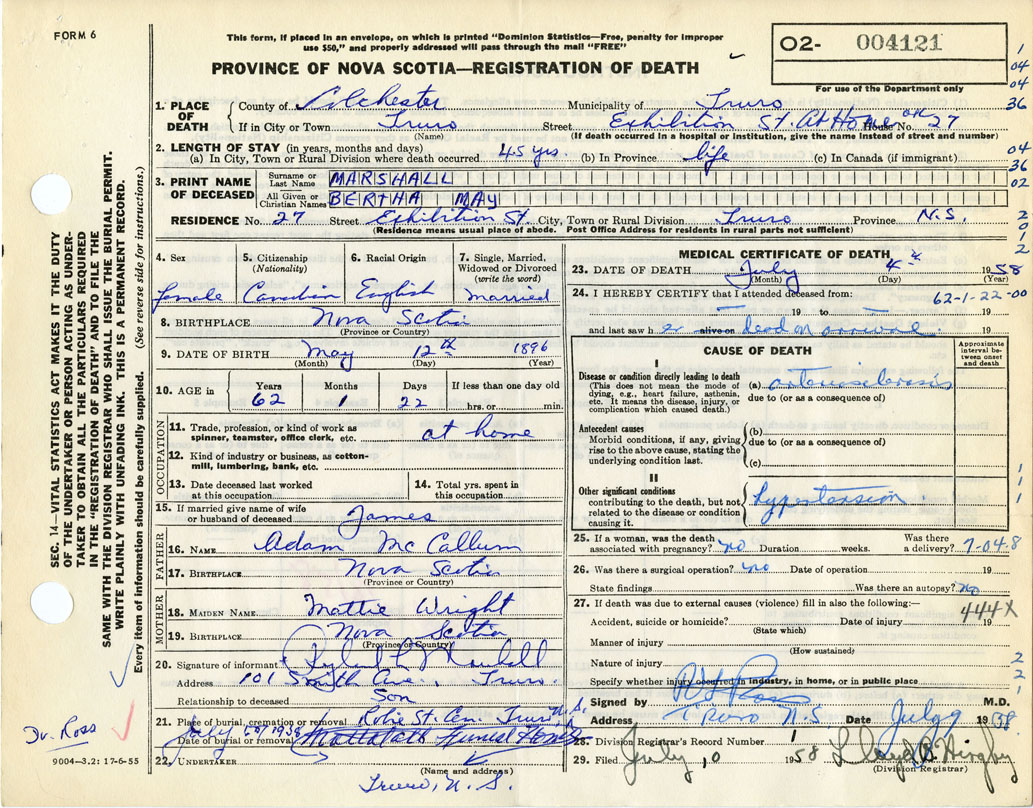 FORM 6
This form, if placed in an envelope, on which is printed "Dominion Statistics—Free, penalty for improper
use $50," and properly addressed will pass through the mail "FREE"
O2- 004121
For use of the Department only
PROVINCE OF NOVA SCOTIA—REGISTRATION OF DEATH
1
04
04
36
04
36
02
2
0
1
2
1. PLACE OF DEATH
County of Colchester Municipality of Truro
If in City or Town Truro Street Exhibition St. At Home OR House No. 27
(Name) (If death occurred in a hospital or institution, give the name instead of street and number)
2. LENGTH OF STAY (in years, months and days)
(a) In City, Town or Rural Division where death occurred 45 yrs. (b) In Province life (c) In Canada (if immigrant)
3. PRINT NAME OF DECEASED
Surname or Last Name MARSHALL
All Given or Christian Names BERTHA MAY
RESIDENCE No. 27 Street Exhibition St. City, Town or Rural Division Truro Province N.S.
(Residence means usual place of abode. Post Office Address for residents in rural parts not sufficient)
4. Sex female
5. Citizenship (Nationality) Canadian
6. Racial Origin English
7. Single, Married, Widowed or Divorced (write the word) Married
8. BIRTHPLACE Nova Scotia
(Province or Country)
9. DATE OF BIRTH May 12th 1896
(Month) (Day) (Year)
10. AGE in Years 62 Months 1 Days 22 If less than one day old
hrs. or min.
OCCUPATION
11. Trade, profession, or kind of work as
spinner, teamster, office clerk, etc. at home
12. Kind of industry or business, as cotton-
mill, lumbering, bank, etc.
13. Date deceased last worked
at this occupation
14. Total yrs. spent in
this occupation
15. If married give name of wife
or husband of deceased James
FATHER
16. NAME Adam McCallum
17. BIRTHPLACE Nova Scotia
(Province or Country)
MOTHER
18. MAIDEN NAME Mattie Wright
19. BIRTHPLACE Nova Scotia
(Province or Country)
20. Signature of informant
Address 101 Smith Ave., Truro
Relationship to deceased Son
21. Place of burial, cremation or removal Robie St. Cem. Truro N.S.
Date of burial or removal July
22. UNDERTAKER Funeral Home
(Name and address)
Truro, N.S.
MEDICAL CERTIFICATE OF DEATH
23. DATE OF DEATH July 4th 1958
(Month) (Day) (Year)
24. I HEREBY CERTIFY that I attended deceased from:
62-1-22-00
19 to 19
and last saw her alive on dead on arrival. 19
CAUSE OF DEATH
Approximate interval between onset and death
I
Disease or condition directly leading to death
(This does not mean the mode of
dying, e.g., heart failure, asthenia,
etc. It means the disease, injury, or
complication which caused death.)
(a) arteriosclerosis
due to (or as a consequence of)
Antecedent causes
Morbid conditions, if any, giving
rise to the above cause, stating the
underlying condition last.
(b)
due to (or as a consequence of)
(c)
II
Other significant conditions
contributing to the death, but not
related to the disease or condition
causing it.
hypertension
1
1
1
25. If a woman, was the death
associated with pregnancy? no Duration weeks. Was there
a delivery? 7-04-8
26. Was there a surgical operation? no Date of operation 19
State findings Was there an autopsy? no
27. If death was due to external causes (violence) fill in also the following:—
444X
Accident, suicide or homicide? Date of injury 19
(State which)
Manner of injury
(How sustained)
Nature of injury
Specify whether injury occurred in industry, in home, or in public place
2
2
1
Signed by Ross M.D.
Address Truro N.S Date July 9 1958
28. Division Registrar's Record Number 1
29. Filed July 10 1958 Lloyd
(Division Registrar)
SEC. 14—VITAL STATISTICS ACT MAKES IT THE DUTY
OF THE UNDERTAKER OR PERSON ACTING AS UNDER-
TAKER TO OBTAIN ALL THE PARTICULARS REQUIRED
IN THE "REGISTRATION OF DEATH" AND TO FILE THE
SAME WITH THE DIVISION REGISTRAR WHO SHALL ISSUE THE BURIAL PERMIT.
WRITE PLAINLY WITH UNFADING INK. THIS IS A PERMANENT RECORD.
Every item of information should be carefully supplied. (See reverse side for instructions.)
Dr. Ross
9004—3.2: 17-6-55